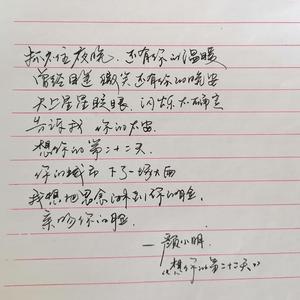 抓不住夜晚,还有你的温暖
曾经目送 微笑还有你的晚安
天上星星眨眼 闪烁不确定
告诉我 你的不安
想你的第二十二天
你的城市 下了一场大雨
我想把思念淋到你的脸
亲吻你的脸
— 颜小明
《想你的第二十二天》